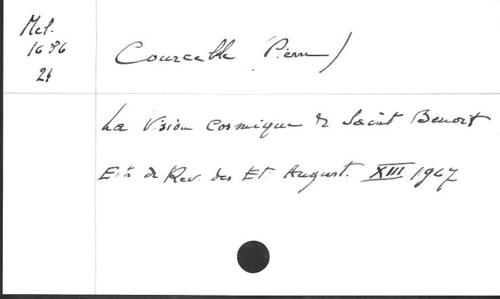 Mel.
1696
24
Courcelle (Pierre)
La Vision cosmique de Saint Benoit
Extr. de Rev. des Et. August. XIII 1967